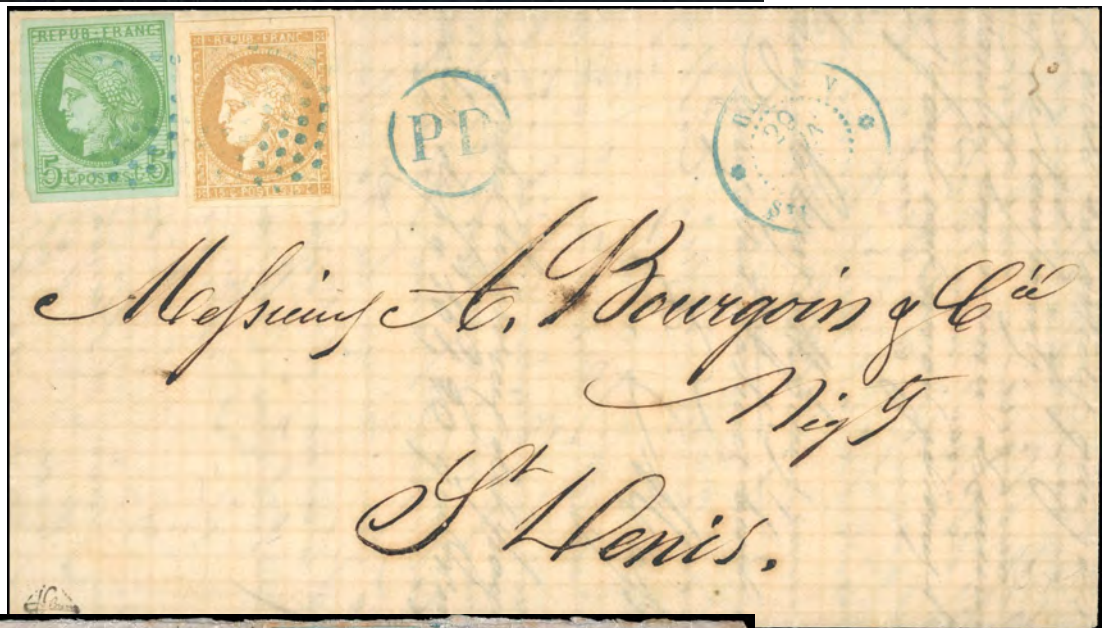 REPUB·FRANC·
5 C·POSTES 5
·REPUB·FRANC·
15·C·POSTES·15·C·
PD
20
Messieurs A. Bourgoin & Cie
Nigts
St Denis.